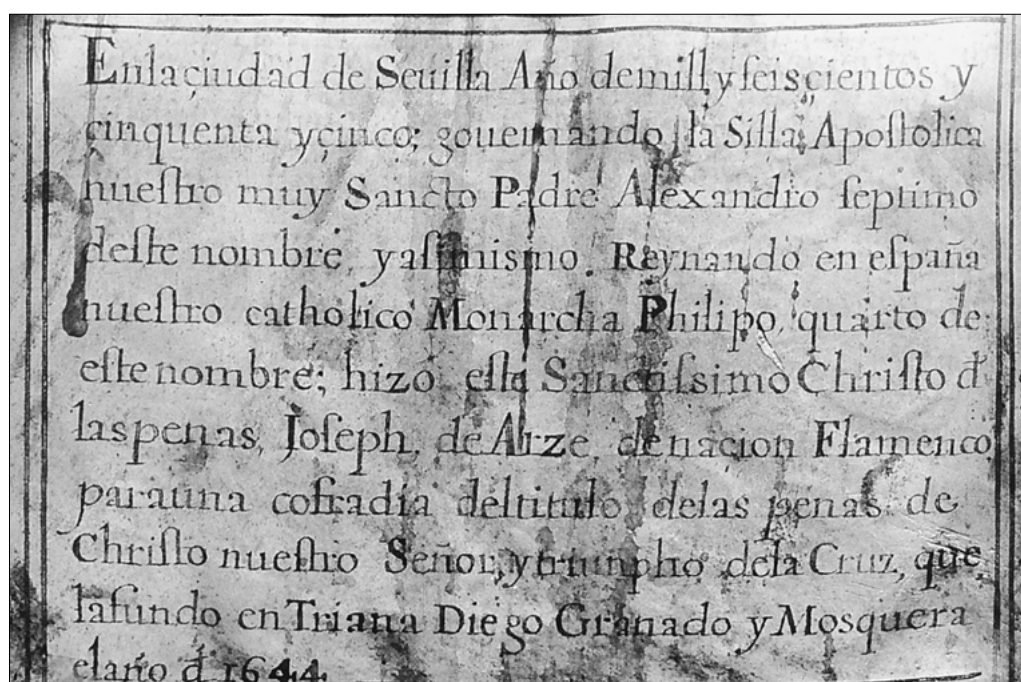 Enlaçiudad de Seuilla Año demill, y ſeisçientos y
çinquenta yçinco; gouernando la Silla Apoſtolica
nueſtro muy Sancto Padre Alexandro ſeptimo
deſte nombre, yaſimismo. Reynando en eſpaña
nueſtro catholico Monarcha Philipo, quarto de
eſte nombre; hizo eſte Sanctiſsimo Chriſto đ
laspenas, Joſeph, de Arze, denaçion Flamenco
parauna cofradia deltitulo delas penas de
Chriſto nueſtro Señor, y triumpho dela Cruz, que
lafundo en Triana Diego Granado y Mosquera
elaño đ 1644.